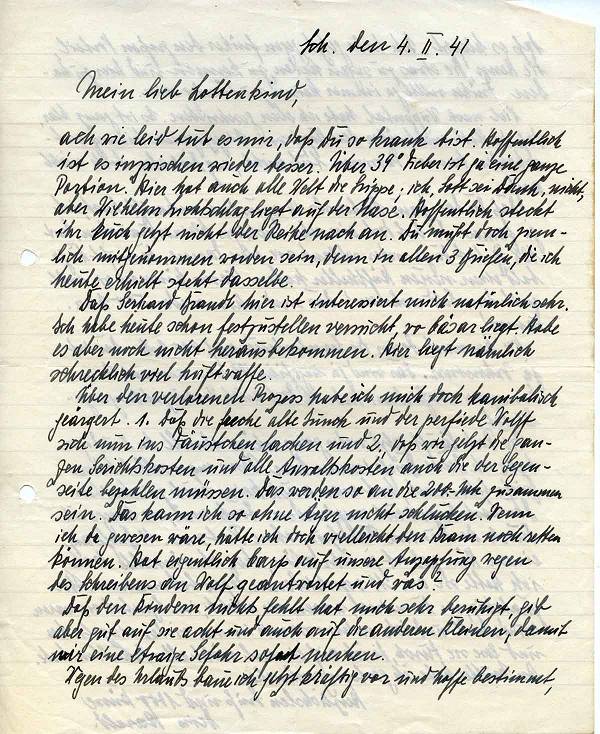 Sch. den 4. II. 41
Mein lieb Lottenkind,
ach wie leid tut es mir, daß Du so krank bist. Hoffentlich
ist es inzwischen wieder besser. Über 39° Fieber ist ja eine ganze
Portion. Hier hat auch alle Welt die Grippe, ich, Gott sei Dank, nicht,
aber Wilhelm liegt auf der Nase. Hoffentlich steckt
ihr Euch jetzt nicht der Reihe nach an. Du mußt doch ziem-
lich mitgenommen worden sein, denn in allen 3 Briefen, die ich
heute erhielt steht dasselbe.
Daß Gerhard Brandl hier ist interessiert mich natürlich sehr.
Ich habe heute schon festzustellen versucht, wo liegt. Habe
es aber noch nicht herausbekommen. Hier liegt nämlich
schrecklich viel Luftwaffe.
Über den verlorenen Prozess habe ich mich doch kanibalisch
geärgert. 1. Daß die freche alte und der perfide Wolff
sich nun ins Fäustchen lachen und 2. daß wir jetzt die gan-
zen Gerichtskosten und alle Anwaltskosten auch die der Gegen-
seite bezahlen müssen. Das werden so an die 200.- Mk zusammen
sein. Das kann ich so ohne Ärger nicht schlucken. Wenn
ich da gewesen wäre, hätte ich doch vielleicht den Kram noch retten
können. Hat eigentlich auf unsere Anzapfung wegen
des Schreibens an Wolf geantwortet und was?
Daß den Kindern nichts fehlt hat mich sehr beruhigt, gib
aber gut auf sie acht und auch auf die anderen Kleinen, damit
wir eine etwaige Gefahr sofort merken.
Wegen des Urlaubs baue ich jetzt kräftig vor und hoffe bestimmt,